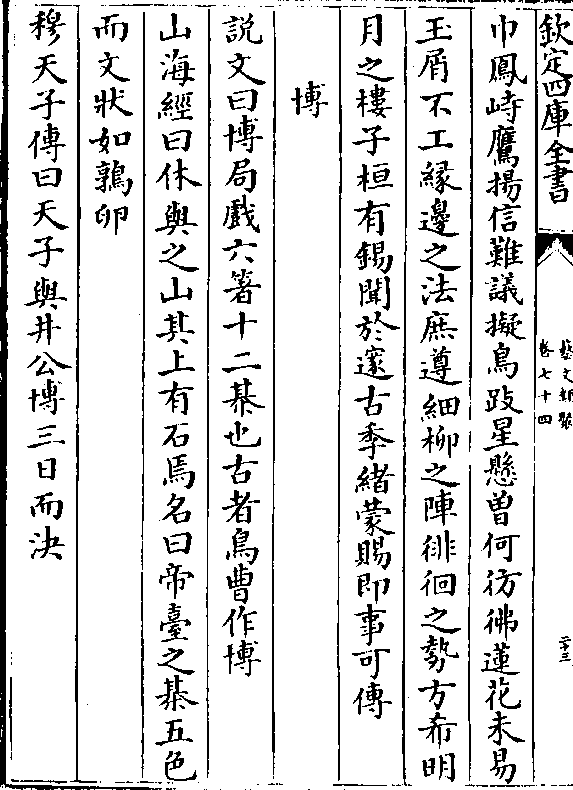 欽定四庫全書
藝文類聚
卷七十四
二十三
巾鳳峙鷹揚信難議擬鳥跂星懸曽何彷彿蓮花未易
玉屑不工縁邊之法庶遵細栁之陣徘徊之勢方希明
月之樓子桓有錫聞於邃古季緒蒙賜即事可傳
博
說文曰博局戲六箸十二棊也古者烏曹作博
山海經曰休與之山其上有石焉名曰帝臺之棊五色
而文狀如鶉卵
穆天子傳曰天子與井公博三日而決